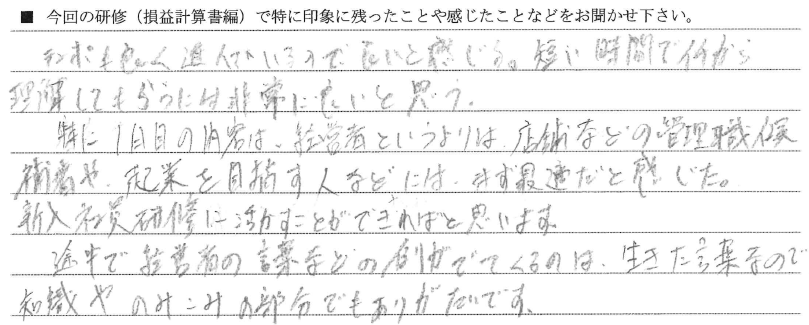 ■ 今回の研修（損益計算書編）で特に印象に残ったことや感じたことなどをお聞かせ下さい。
テンポも良く進んでいるので良いと感じる。短い時間で1から
理解してもらうには非常に良いと思う。
特に1日目の内容は、経営者というよりは、店舗などの管理職候
補者や、起業を目指す人などには、まず最適だと感じた。
新入社員研修に活かすことができればと思います。
途中で経営者の言葉などの例がでてくるのは、生きた言葉なので
知識やのみこみの部分でもありがたいです。